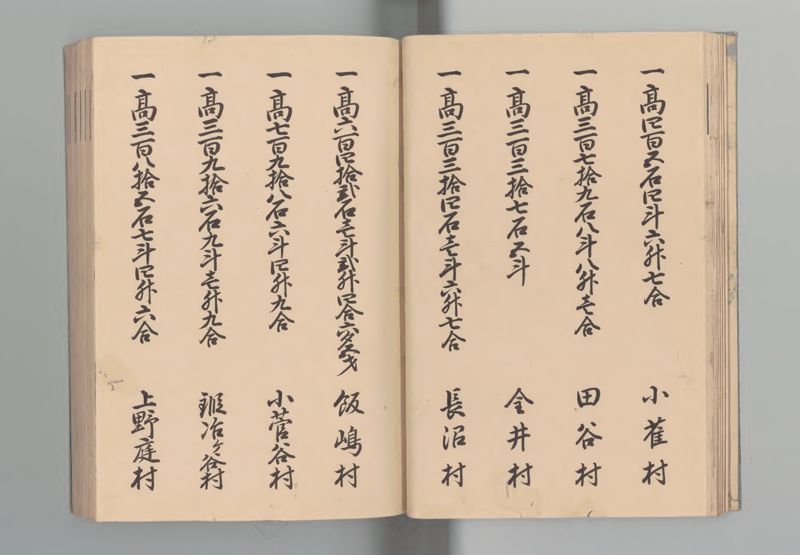 一高四百五石四斗六升七合 小雀村
一高三百七拾九石八斗八升壱合 田谷村
一高三百三拾七石五斗 金井村
一高三百三拾四石壱斗六升七合 長沼村
一高六百四拾弐石壱斗弐升四合六夕弐才 飯嶋村
一高七百九拾八石六斗四升九合 小菅谷村
一高三百九拾六石九斗壱升九合 鍛冶ヶ谷村
一高三百八拾五石七斗四升六合 上野庭村